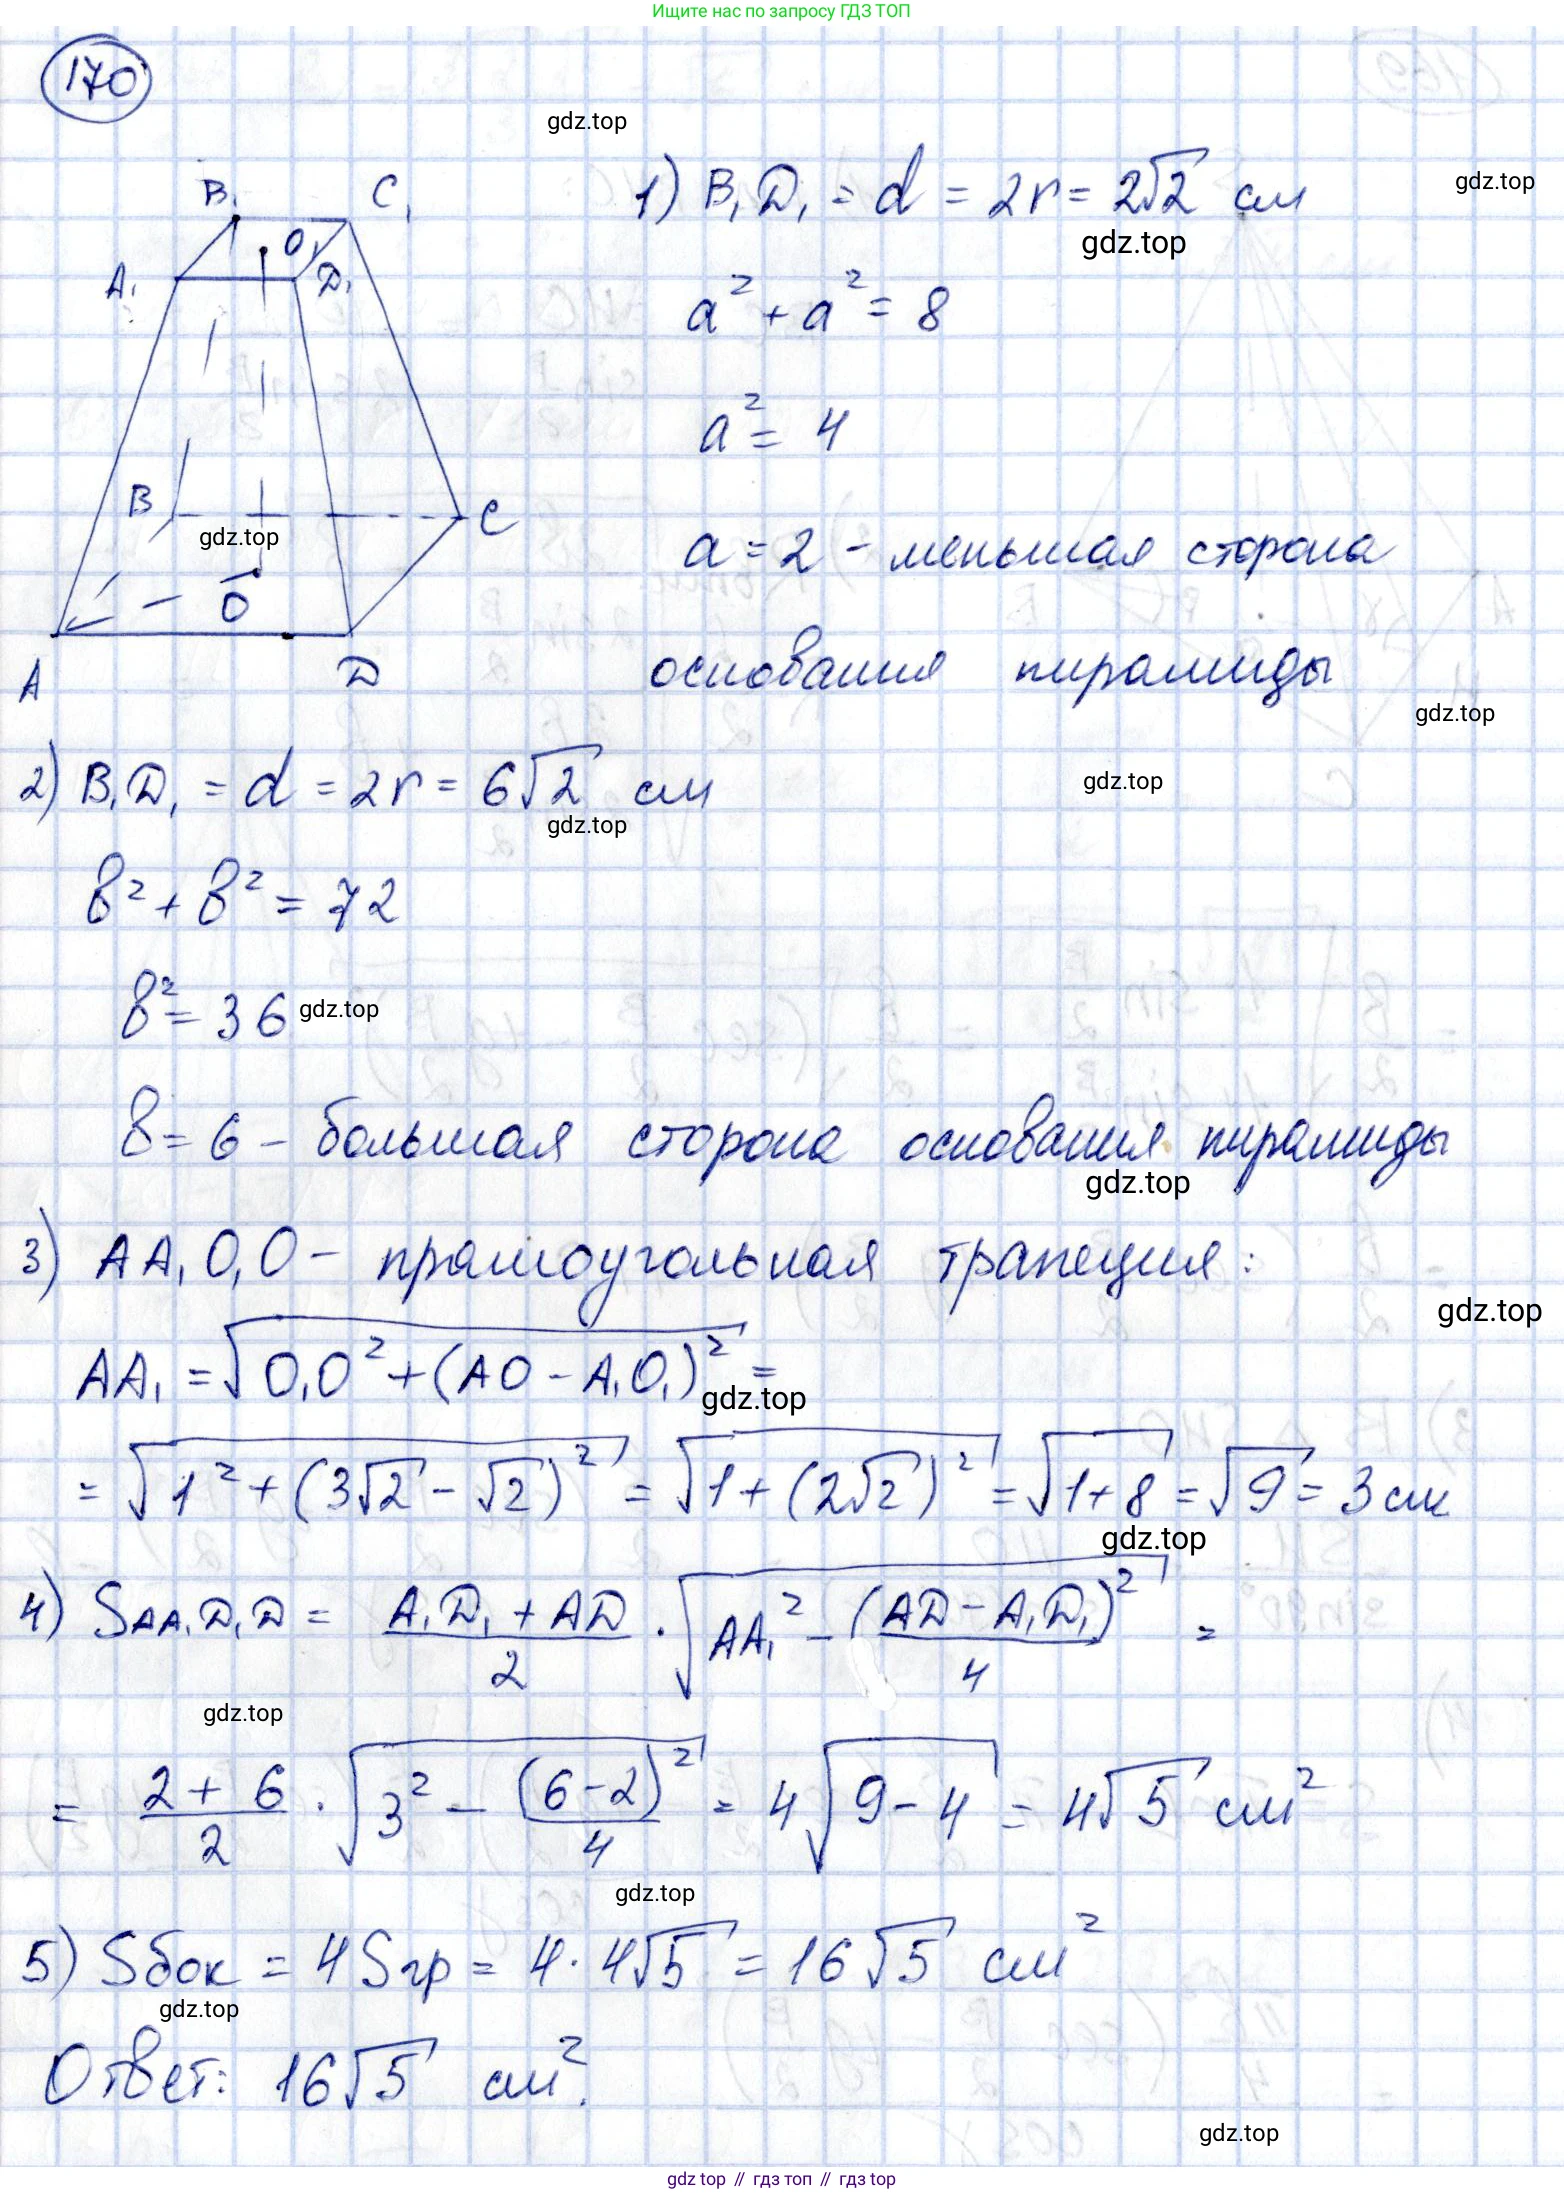 Ищите нас по запросу ГДЗ ТОП
170
gdz.top
B₁ C₁
O₁
A₁ D₁
B C
gdz.top
O
A D
1) B₁D₁ = d = 2r = 2√2 см
gdz.top
gdz.top
a² + a² = 8
a² = 4
gdz.top
a = 2 - меньшая сторона
основания пирамиды
gdz.top
2) B₁D₁ = d = 2r = 6√2 см
gdz.top
gdz.top
в² + в² = 72
в² = 36
gdz.top
в = 6 - большая сторона основания пирамиды
gdz.top
3) AA₁O₁O - прямоугольная трапеция:
gdz.top
AA₁ = √(O₁O² + (AO - A₁O₁)²) =
gdz.top
= √(1² + (3√2 - √2)²) = √(1 + (2√2)²) = √(1+8) = √9 = 3 см
gdz.top
4) SAA₁D₁D = (A₁D₁ + AD)/2 · √(AA₁² - (AD - A₁D₁)²/4) =
gdz.top
= (2 + 6)/2 · √(3² - (6-2)²/4) = 4√(9-4) = 4√5 см²
gdz.top
5) Sбок = 4Sгр = 4 · 4√5 = 16√5 см²
gdz.top
Ответ: 16√5 см².
gdz.top
gdz top // гдз топ // гдз top